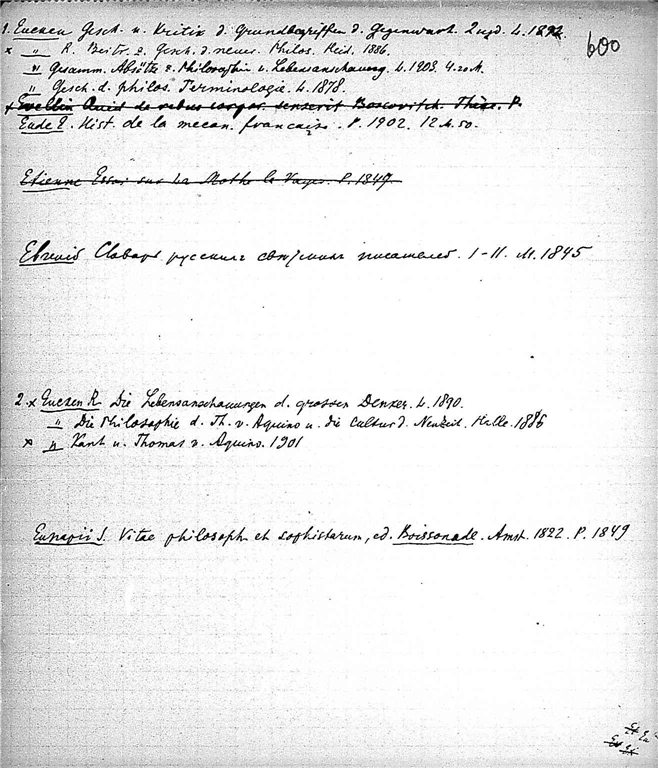 600
1. Eucken Gesch. u. Kritik d. Grundbegriffen d. Gegenwart. 2 ugd. L. 1892
x " R. Beitr. z. Gesch. d. neuer. Philos. Heid. 1886.
" Gesamm. Absätze z. Philosophie u. Lebensanschauung. L. 1903. 4.20 M.
" Gesch. d. philos. Terminologie. L. 1878.
x Evellin Quid de rebus corpor. senserit Boscovitch. Thèse. P.
Eude E. Hist. de la mecan. française. P. 1902. 12 M. 50.
Etienne Essai sur La Mothe le Vayer. P. 1849.
Евгений Словарь русских писателей. I-II. М. 1845
2. x Eucken R. Die Lebensanschauungen d. grossen Denker. L. 1890.
" Die Philosophie d. Th. v. Aquino u. die Cultur d. Neuzeit. Halle. 1886
x " Kant u. Thomas v. Aquino. 1901
Eunapii S. Vitae philosoph et sophistarum, ed. Boissonade. Amst. 1822. P. 1849
Et Eu